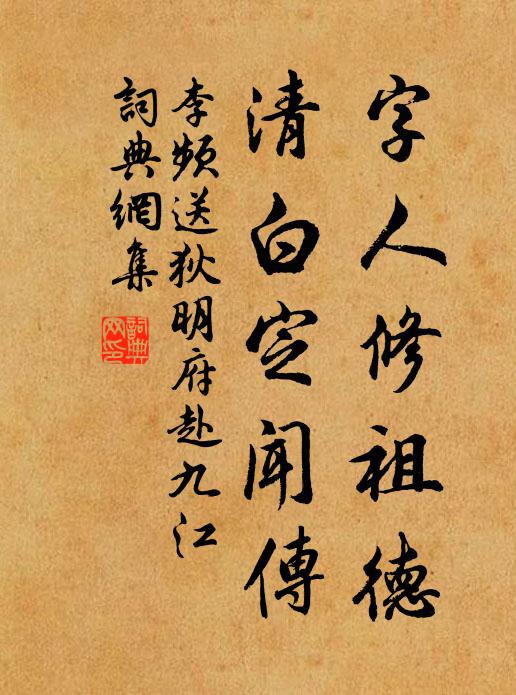 字人修祖德
清白定闻傳
李頻送狄明府赴九江
詞典網集
詞典网印